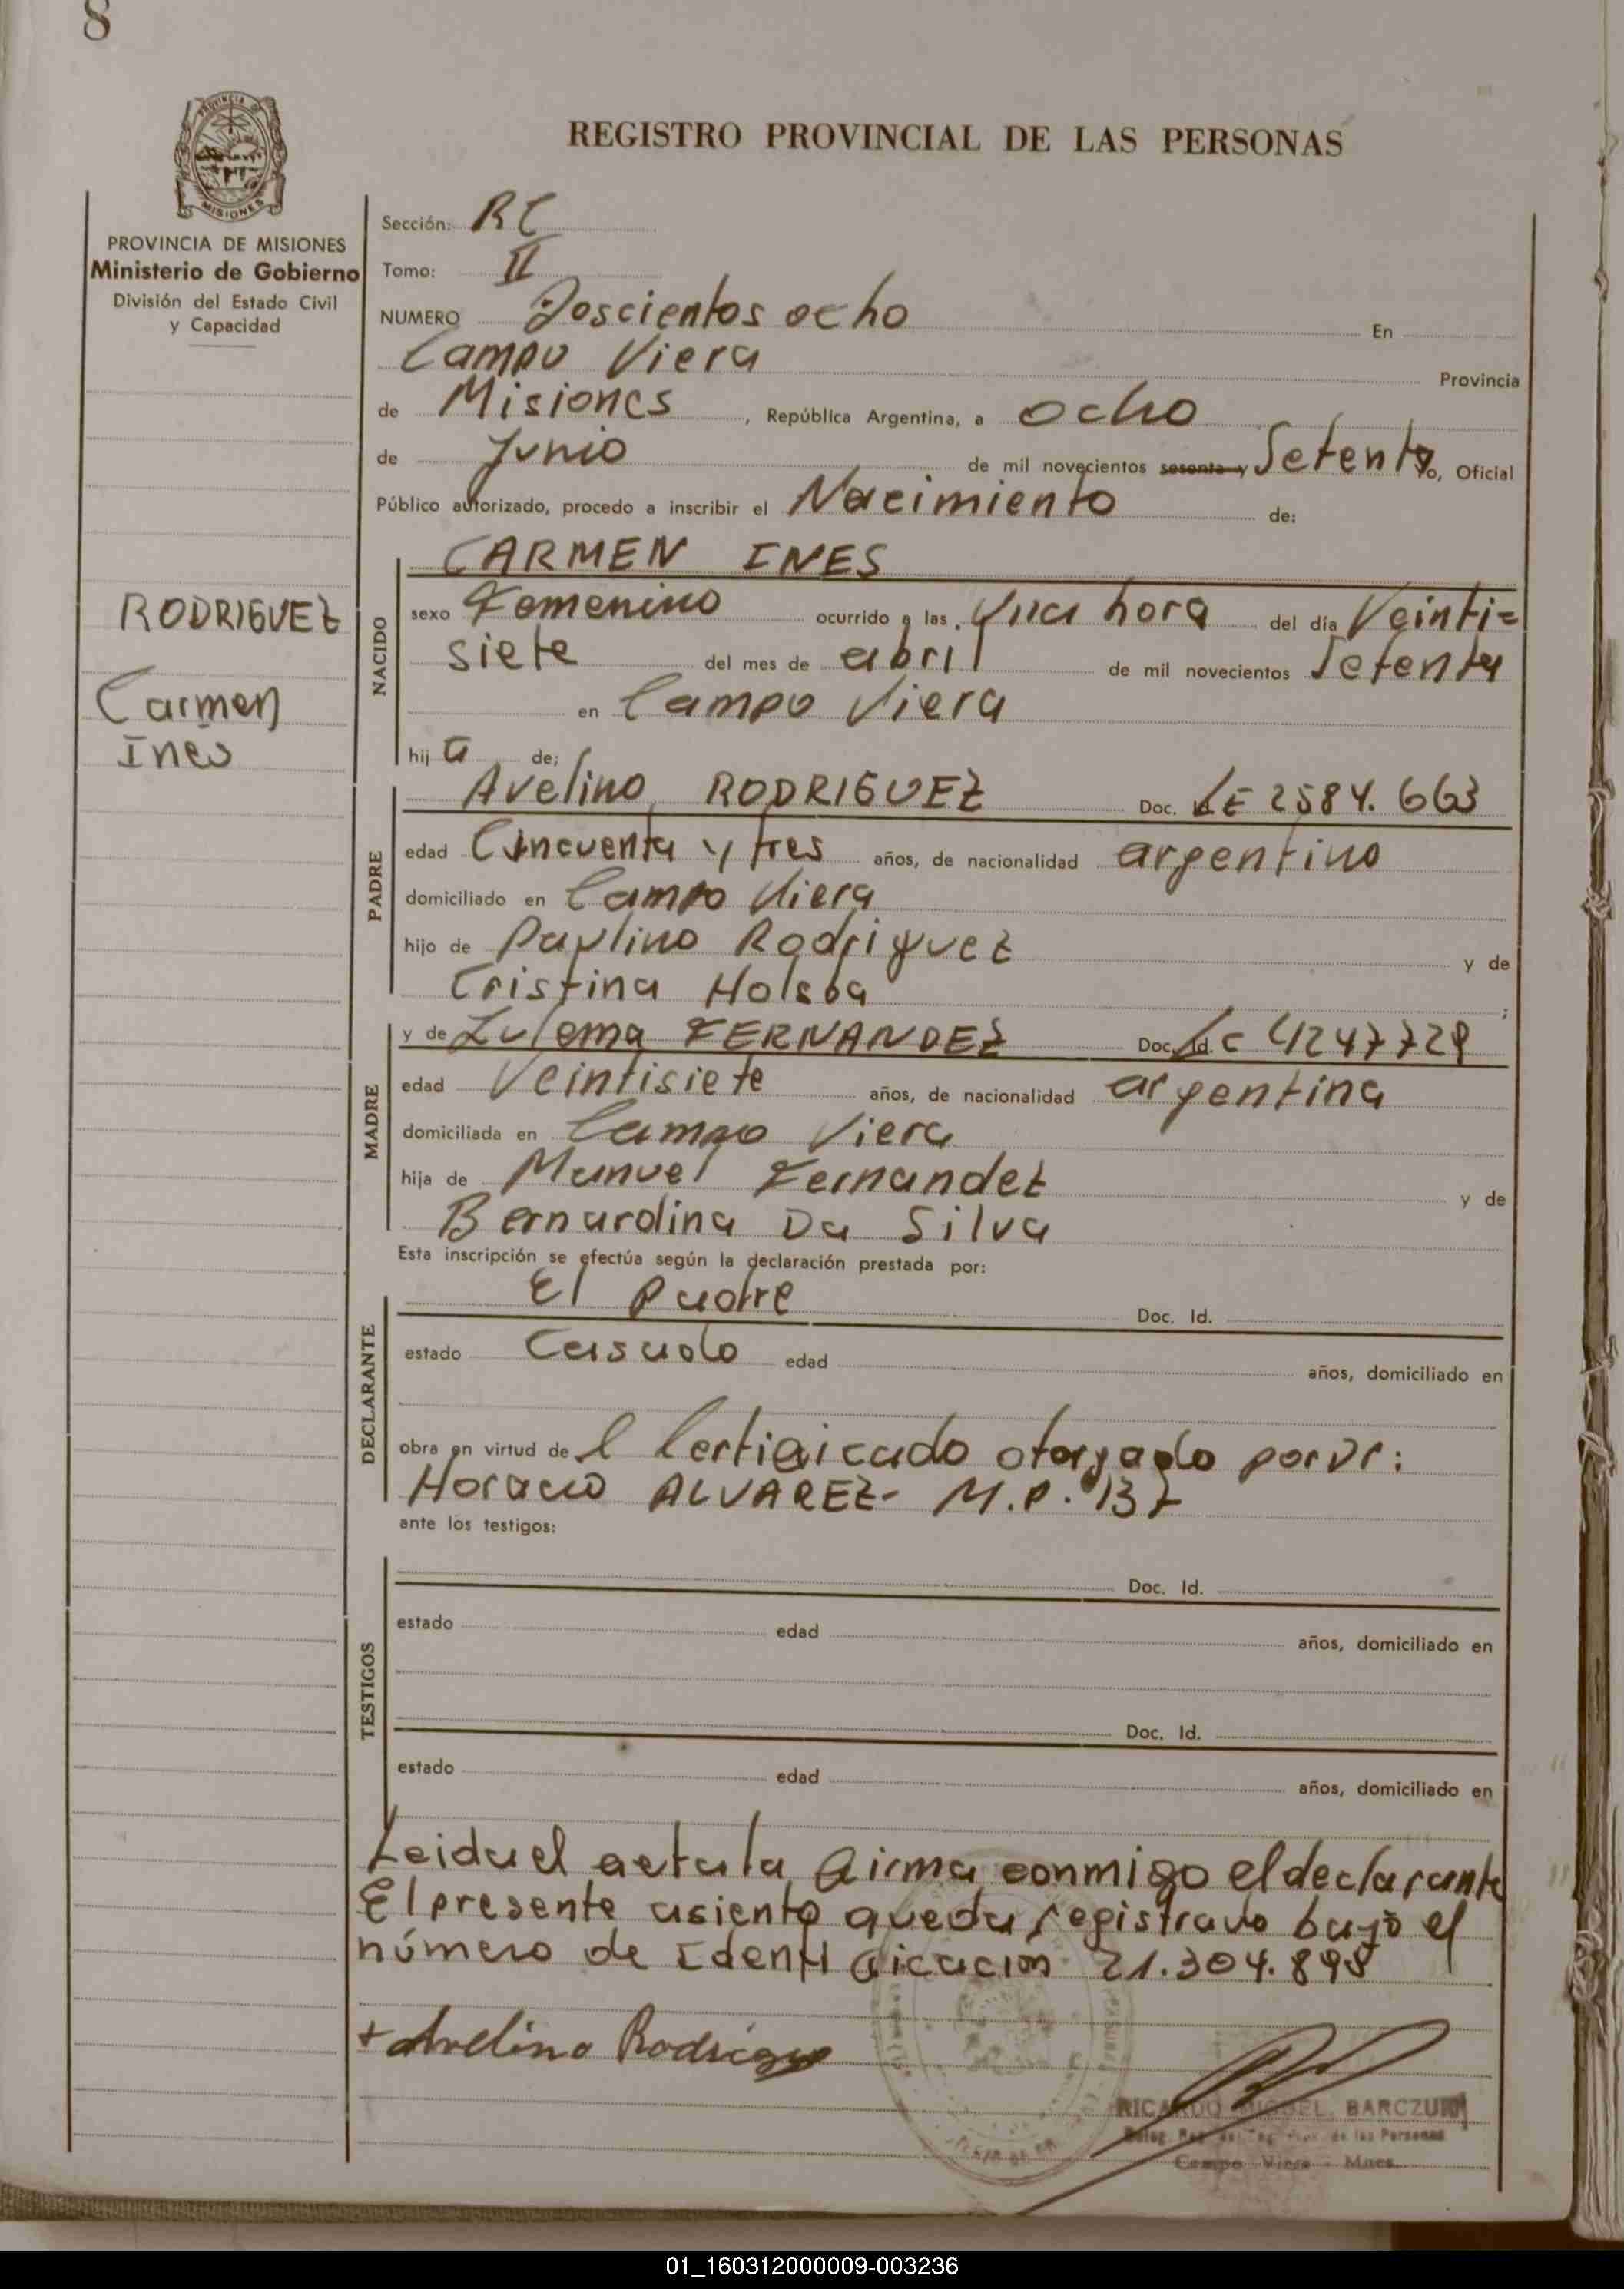 8
REGISTRO PROVINCIAL DE LAS PERSONAS
PROVINCIA DE MISIONES
Ministerio de Gobierno
División del Estado Civil
y Capacidad
RODRIGUEZ
Carmen
Inés
Sección: RC
Tomo: II
NUMERO Doscientos ocho En
Campo Viera Provincia
de Misiones, República Argentina, a ocho
de Junio de mil novecientos sesenta y Setenta, Oficial
Público autorizado, procedo a inscribir el Nacimiento de:
NACIDO
CARMEN INES
sexo Femenino ocurrido a las Una hora del día Veinti=
siete del mes de abril de mil novecientos Setenta
en Campo Viera
hij a de;
PADRE
Avelino RODRIGUEZ Doc. LE 2584.663
edad Cincuenta y tres años, de nacionalidad argentino
domiciliado en Campo Viera
hijo de Paulino Rodriguez y de
Cristina ;
MADRE
y de Zulema FERNANDEZ Doc. Id. LC 4247729
edad Veintisiete años, de nacionalidad argentina
domiciliada en Campo Viera
hija de Manuel Fernandez y de
Bernardina Da Silva
Esta inscripción se efectúa según la declaración prestada por:
DECLARANTE
El Padre Doc. Id.
estado Casado edad años, domiciliado en
obra en virtud de l Certificado otorgado por Dr:
Horacio ALVAREZ- M.P. 137
ante los testigos:
TESTIGOS
Doc. Id.
estado edad años, domiciliado en
Doc. Id.
estado edad años, domiciliado en
Leida el acta la firma conmigo el declarante
El presente asiento queda registrado bajo el
número de Identificacion 21.304.898
+ Avelino Rodriguez
RICARDO MIGUEL BARCZUK
de las Personas
Campo Viera - Mnes.
01_160312000009-003236